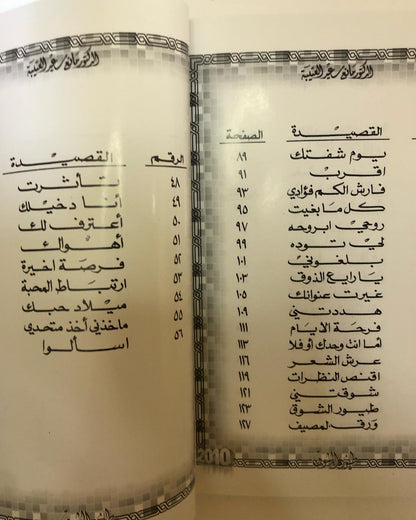 الدكتور مانع سعيد العتيبة
القصيدة الصفحة
يوم شفتك ٨٩
اقرب ٩١
فارش الكم فؤادي ٩٣
كل ما بغيت ٩٥
روحي ابروحه ٩٧
توده ٩٩
بلغوني ١٠١
يا رايع الذوق ١٠٣
غيرت عنوانك ١٠٥
هددتني ١٠٩
فرحة الأيام ١١١
أما انت وجدك أو فلا ١١٣
عرش الشعر ١١٦
اقنص النظرات ١١٩
شوقتني ١٢١
طيور الشوق ١٢٣
ورق المصيف ١٢٧
2010
الدكتور مانع سعيد العتيبة
الرقم القصيدة
٤٨ تأثرت
٤٩ أنا دخيلك
٥٠ أعترف لك
٥١ أهواك
٥٢ فرصة اخيرة
٥٣ ارتباط المحبة
٥٤ ميلاد حبك
٥٥ ماخذني أخذ متحدي
٥٦ اسألوا